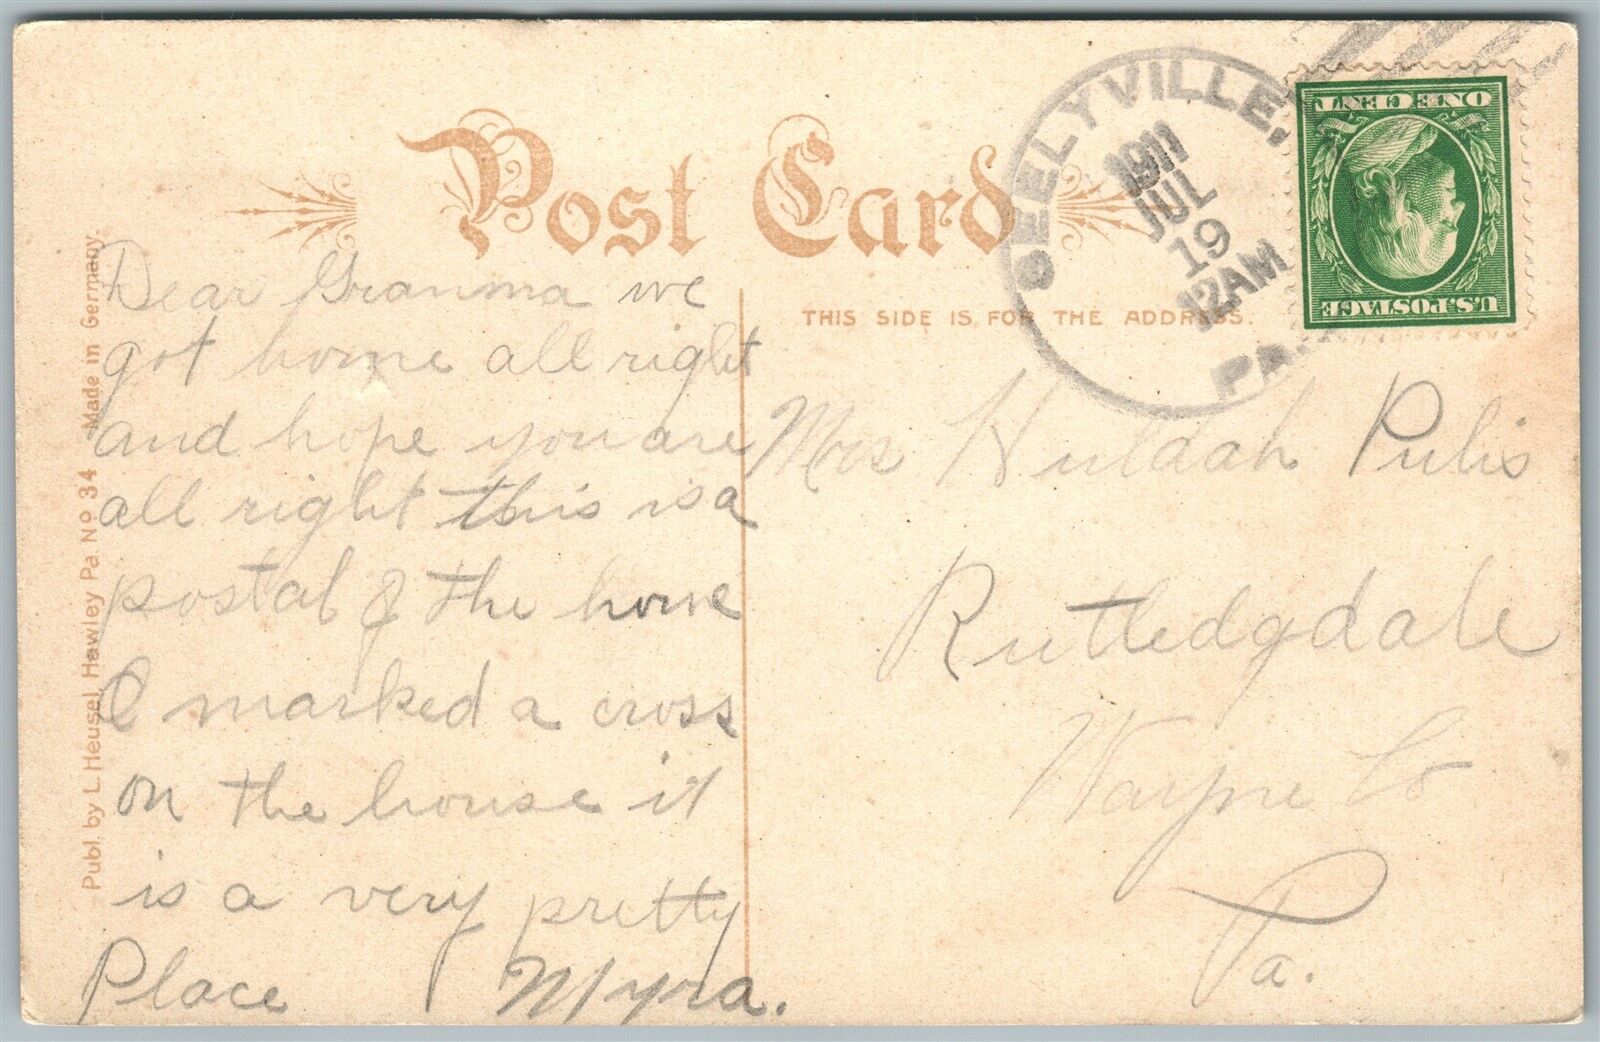 Post Card
THIS SIDE IS FOR THE ADDRESS.
SEELYVILLE,
1911
JUL
19
12AM
PA.
U.S.POSTAGE
ONE CENT
Publ. by L. Heusel Hawley Pa No 34 Made in Germany.
Dear Granma we
got home all right
and hope you are
all right this is a
postal of the home
I marked a cross
on the house it
is a very pretty
Place Myra.
Mrs Huldah Pulis
Rutledgdale
Wayne Co
Pa.